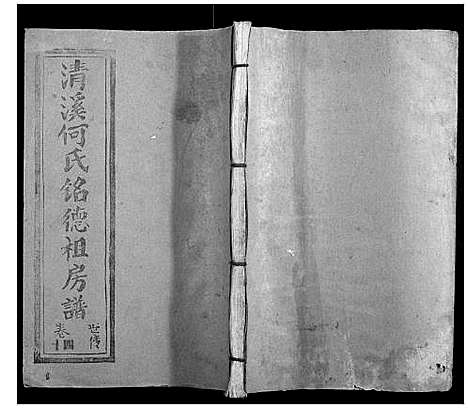 清溪何氏銘德祖房譜
世傳
卷十四